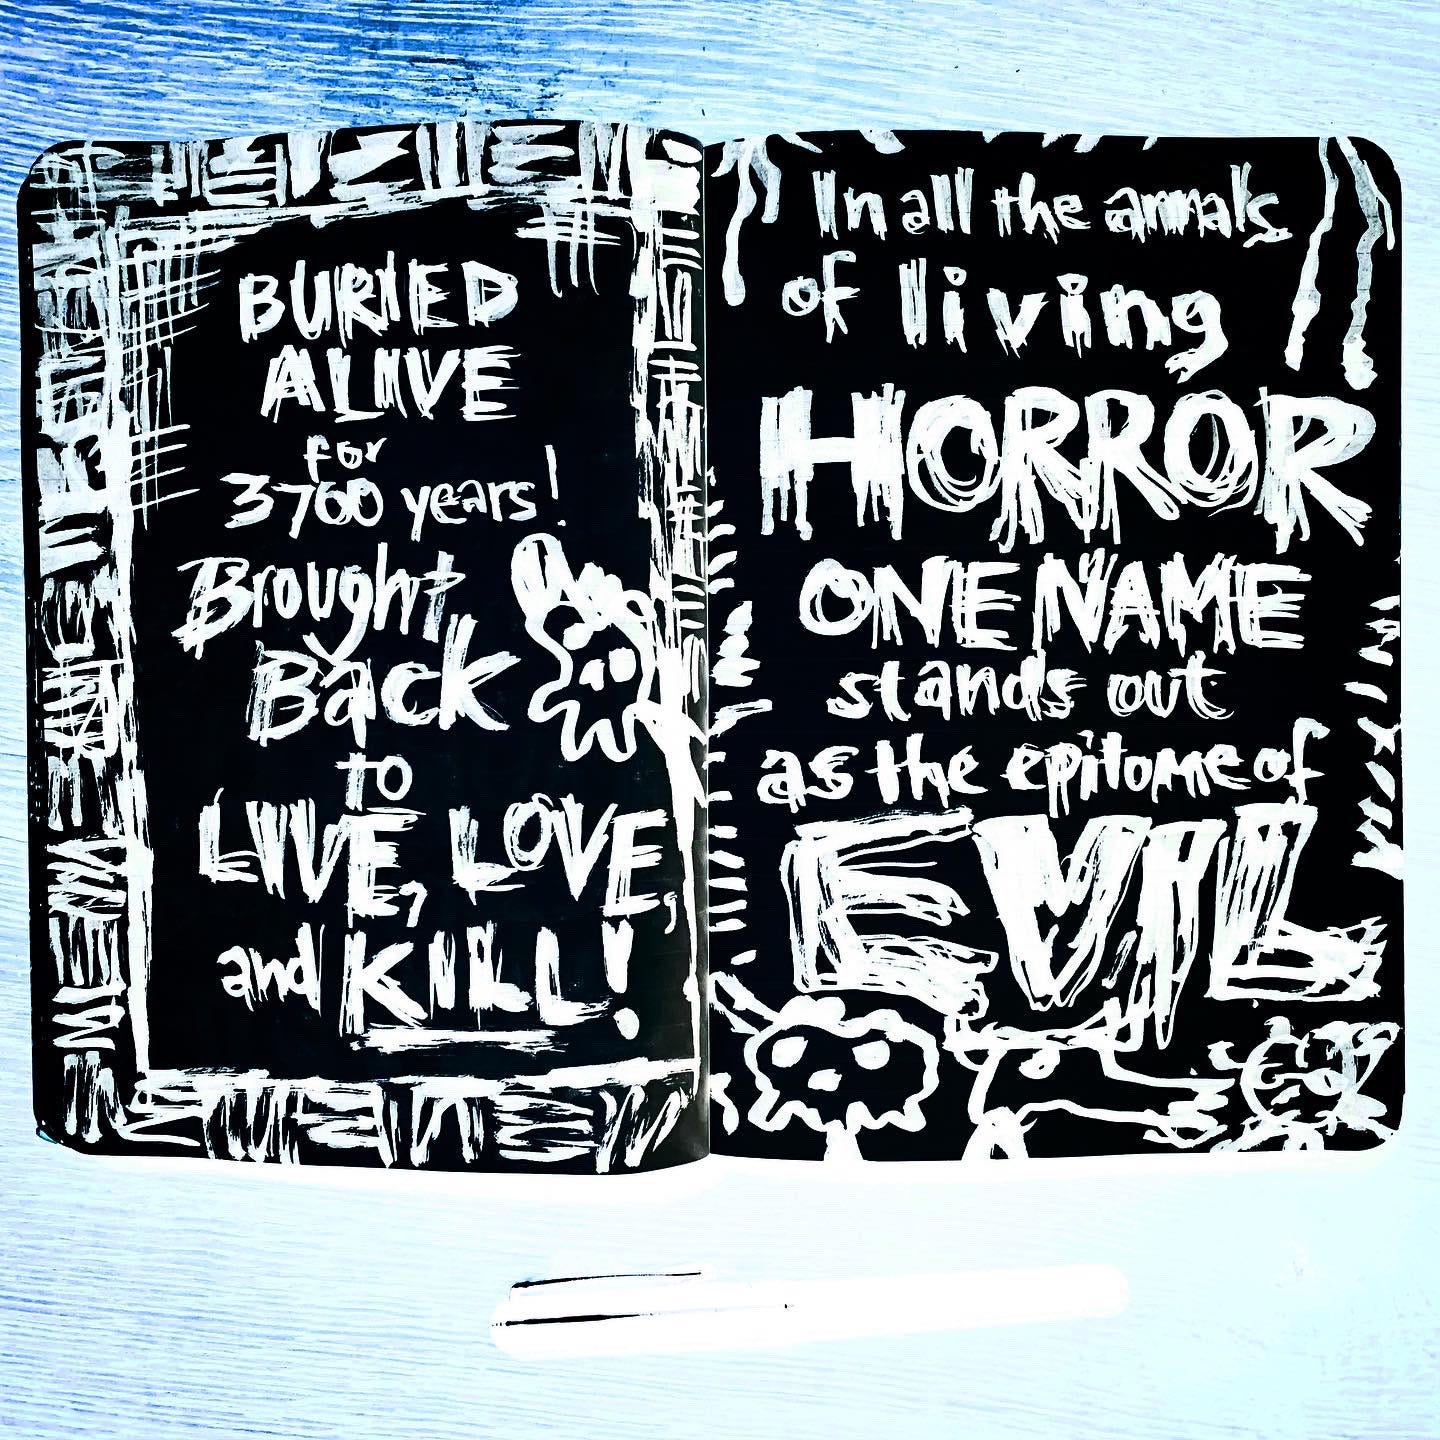 BURIED
ALIVE
for
3700 years!
Brought
Back
to
LIVE, LOVE,
and KILL!
In all the annals
of living
HORROR
ONE NAME
stands out
as the epitome of
EVIL